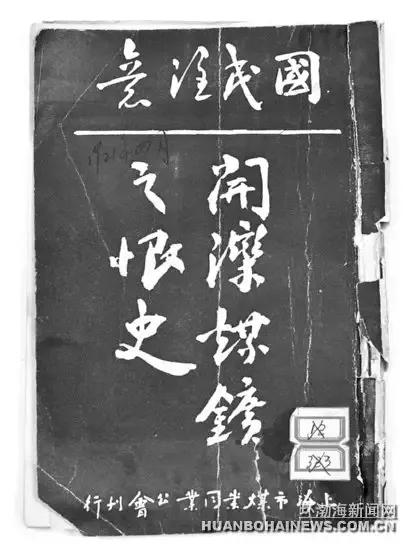 國民注意
開灤煤鑛
之恨史
上海市煤業同業公會刊行
环渤海新闻网
HUANBOHAINEWS.COM.CN